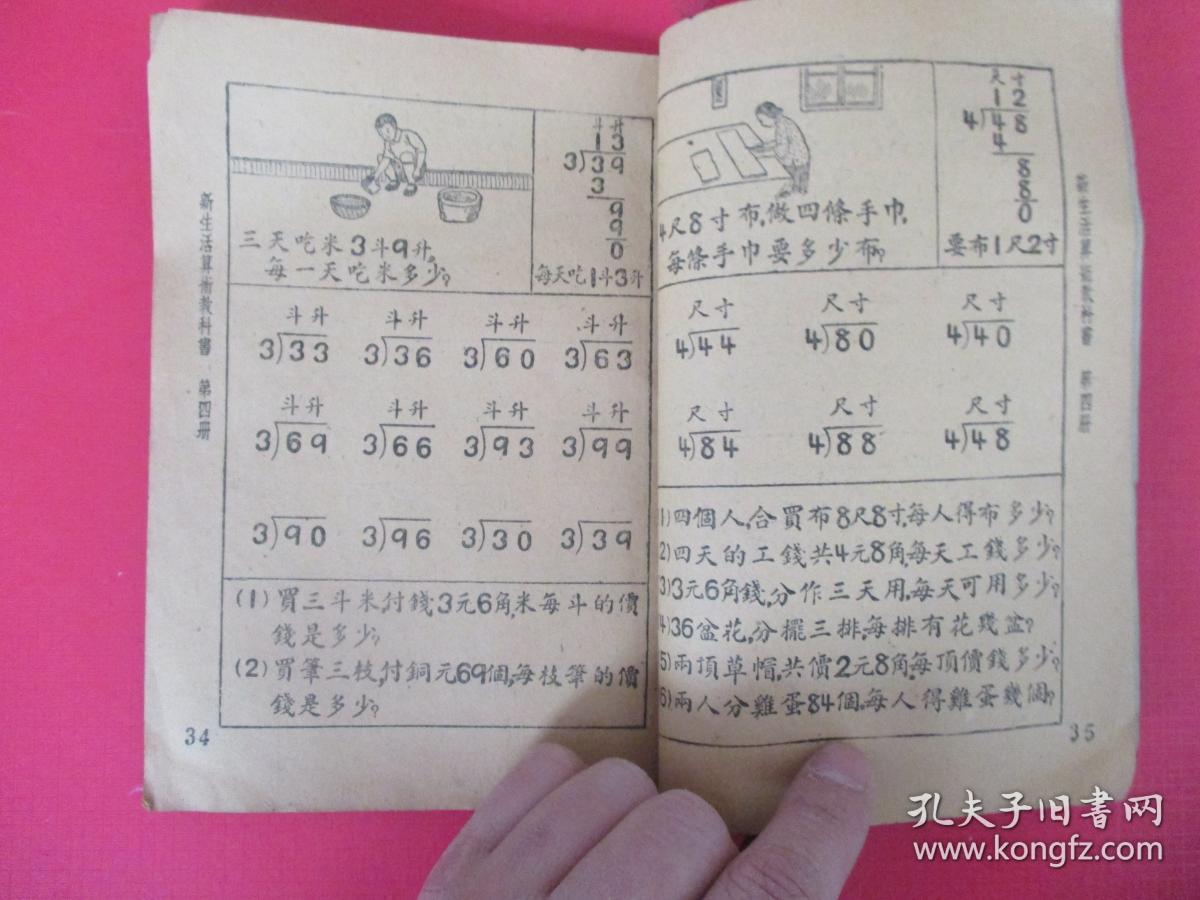 新生活算術教科書 第四冊
三天吃米3斗9升,
每一天吃米多少?
斗升
13
3)39
3
9
9
0
每天吃1斗3升
斗升 斗升 斗升 斗升
3)33 3)36 3)60 3)63
斗升 斗升 斗升 斗升
3)69 3)66 3)93 3)99
3)90 3)96 3)30 3)39
(1) 買三斗米,付錢3元6角,米每斗的價
錢是多少?
(2) 買筆三枝,付銅元69個,每枝筆的價
錢是多少?
34
4尺8寸布,做四條手巾,
每條手巾要多少布?
尺寸
12
4)48
4
8
8
0
要布1尺2寸
尺寸 尺寸 尺寸
4)44 4)80 4)40
尺寸 尺寸 尺寸
4)84 4)88 4)48
1)四個人,合買布8尺8寸,每人得布多少?
2)四天的工錢共4元8角,每天工錢多少?
3)3元6角錢,分作三天用,每天可用多少?
4)36盆花,分擺三排,每排有花幾盆?
5)兩頂草帽,共價2元8角,每頂價錢多少?
6)兩人分雞蛋84個,每人得雞蛋幾個?
35
新生活算術教科書 第四冊
孔夫子旧书网
www.kongfz.com